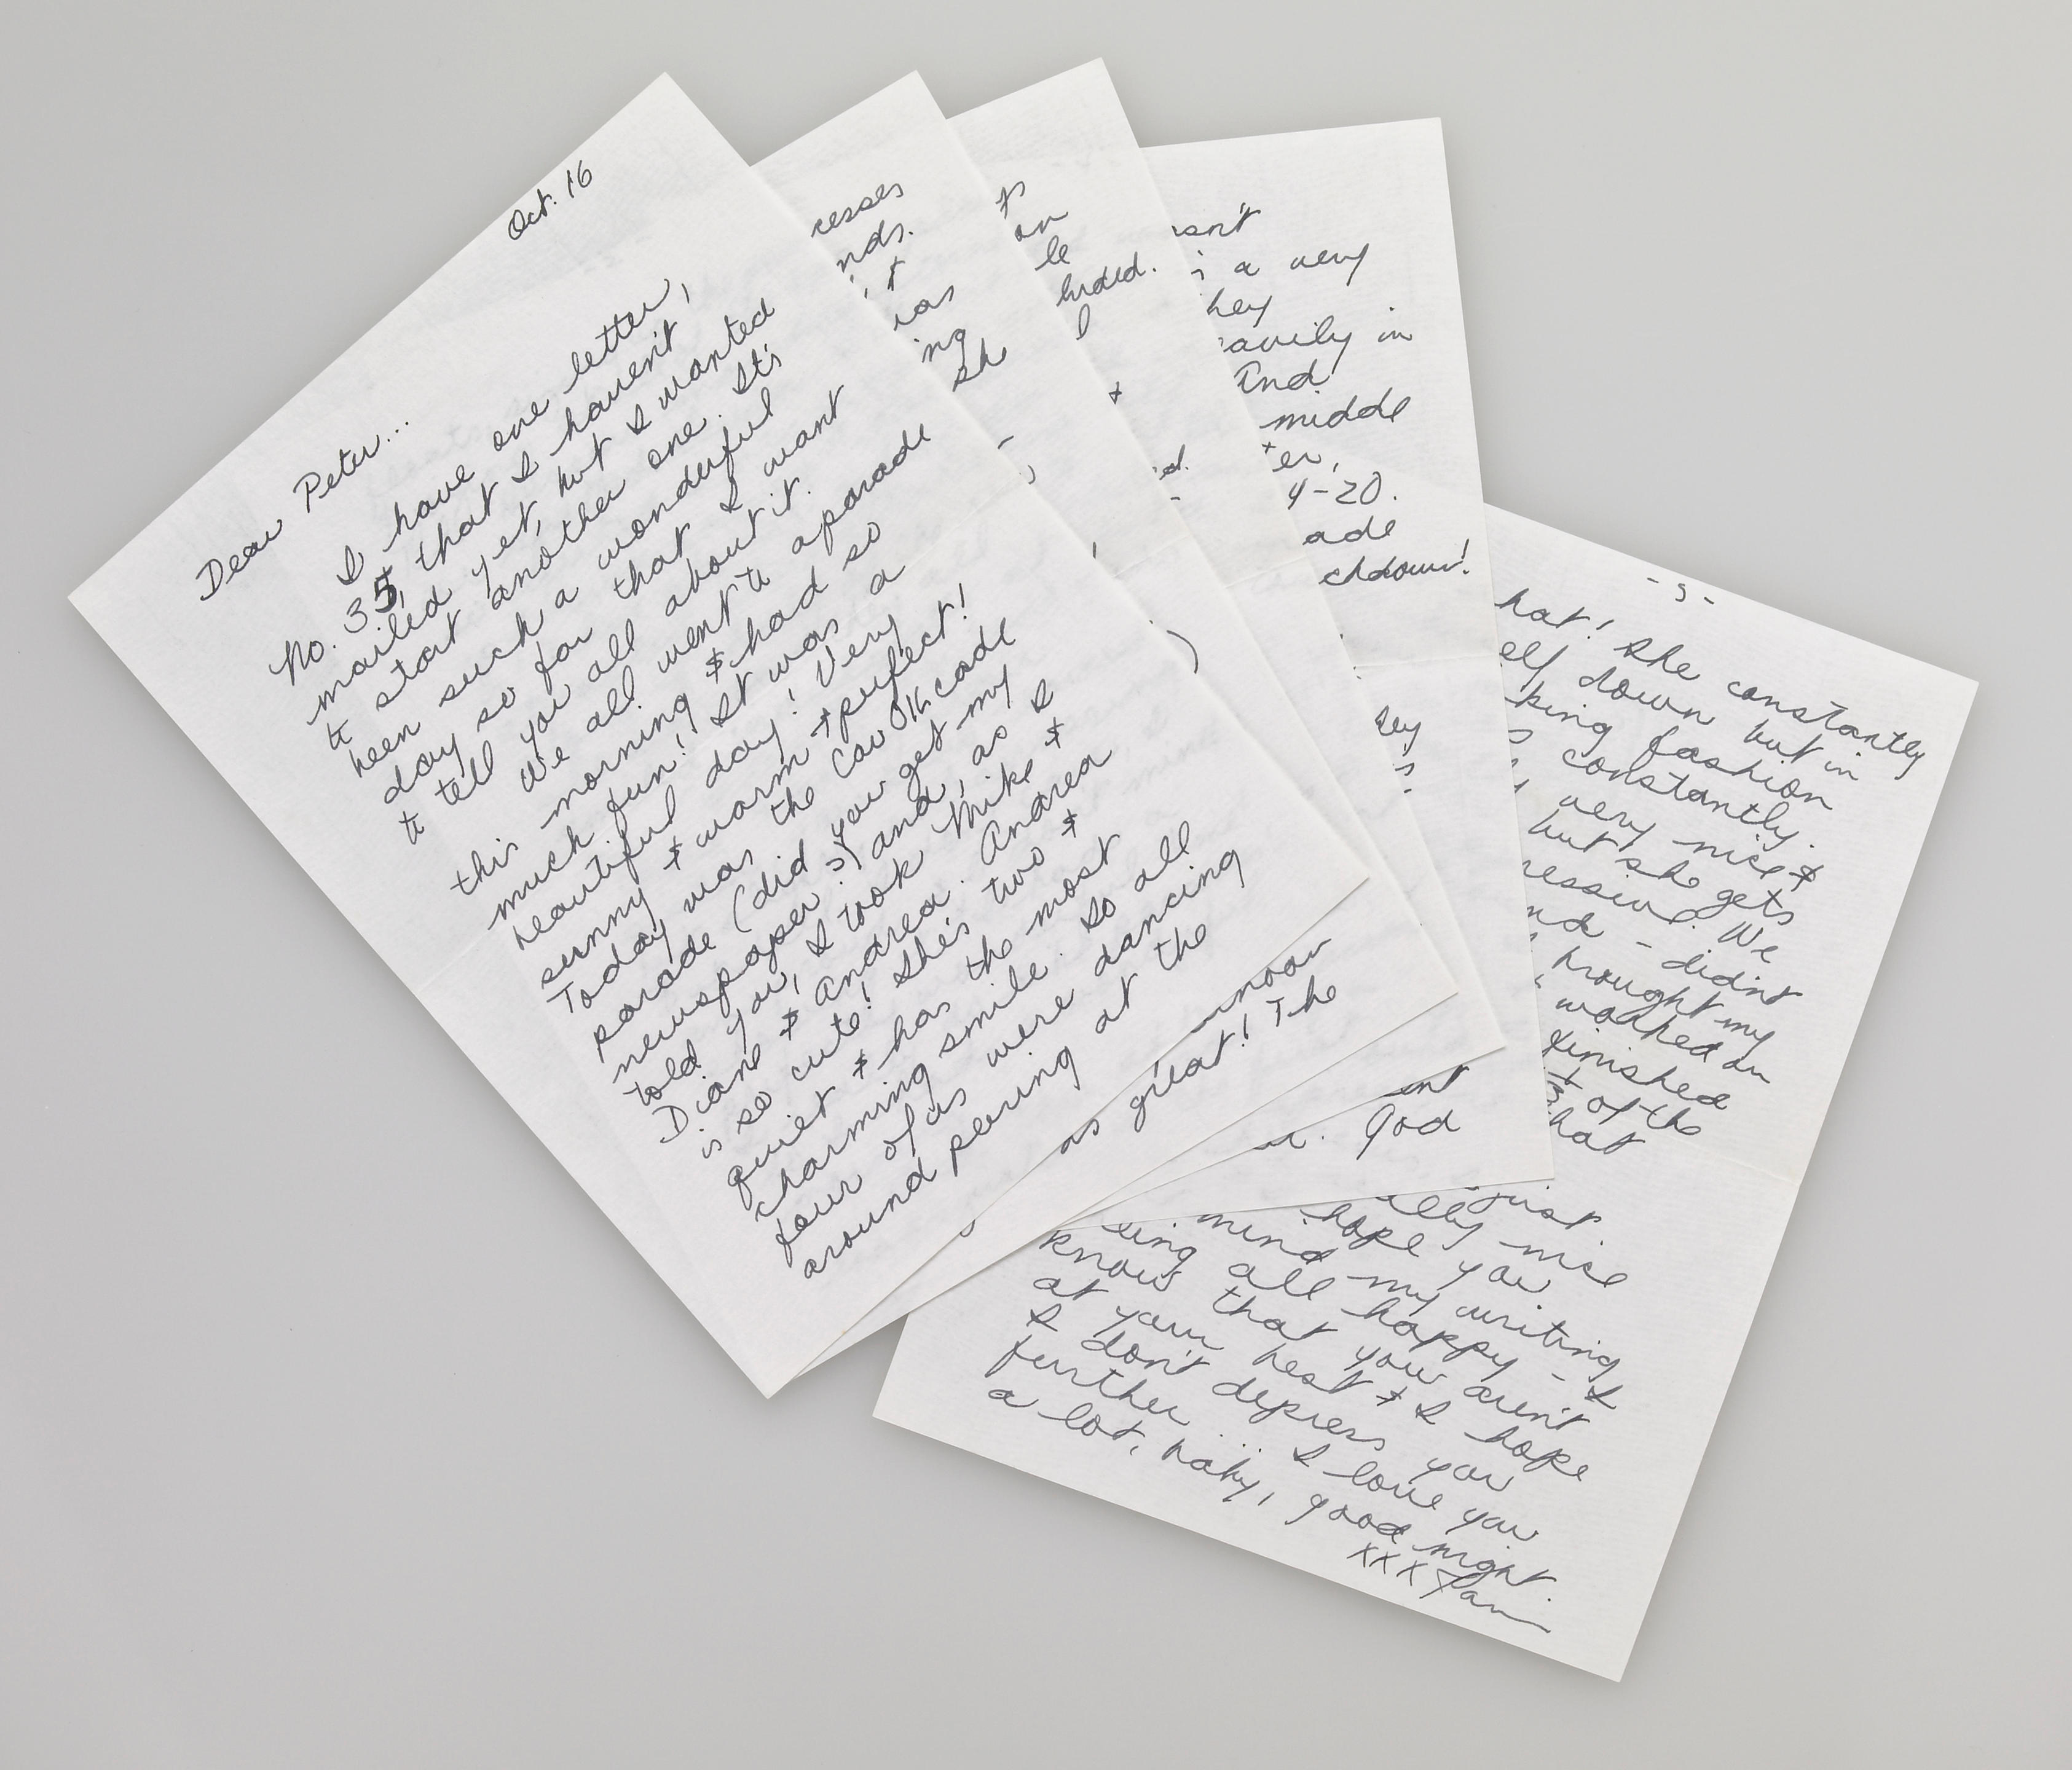 Oct. 16
Dear Peter...
I have one letter,
No. 35, that I haven't
mailed yet, but I wanted
to start another one. It's
been such a wonderful
day so far that I want
to tell you all about it.
We all went to a parade
this morning & had so
much fun! It was a
beautiful day! Very
sunny & warm & perfect!
Today was the Cavalcade
parade (did you get my
newspaper?) and, as I
told you, I took Mike &
Diane & Andrea. Andrea
is so cute! She's two &
quiet & has the most
charming smile. So all
four of us were dancing
around peering at the
resses
nds.
was
ing
she
noon
as great! The
ts
on
le
luded.
&
ed.
ent
God
sn't
a very
hey
eavily in
And
middle
er,
4-20.
ade
chdown!
ley
-5-
hat! She constantly
elf down but in
king fashion
constantly.
very nice &
but she gets
ressive. We
nd - didn't
brought my
worked on
finished
of the
hat
just
ally nice
hope you
mind my writing
being all happy - I
know that you aren't
at your best & I hope
I don't depress you
further... I love you
a lot, baby, good night.
xxx Pam